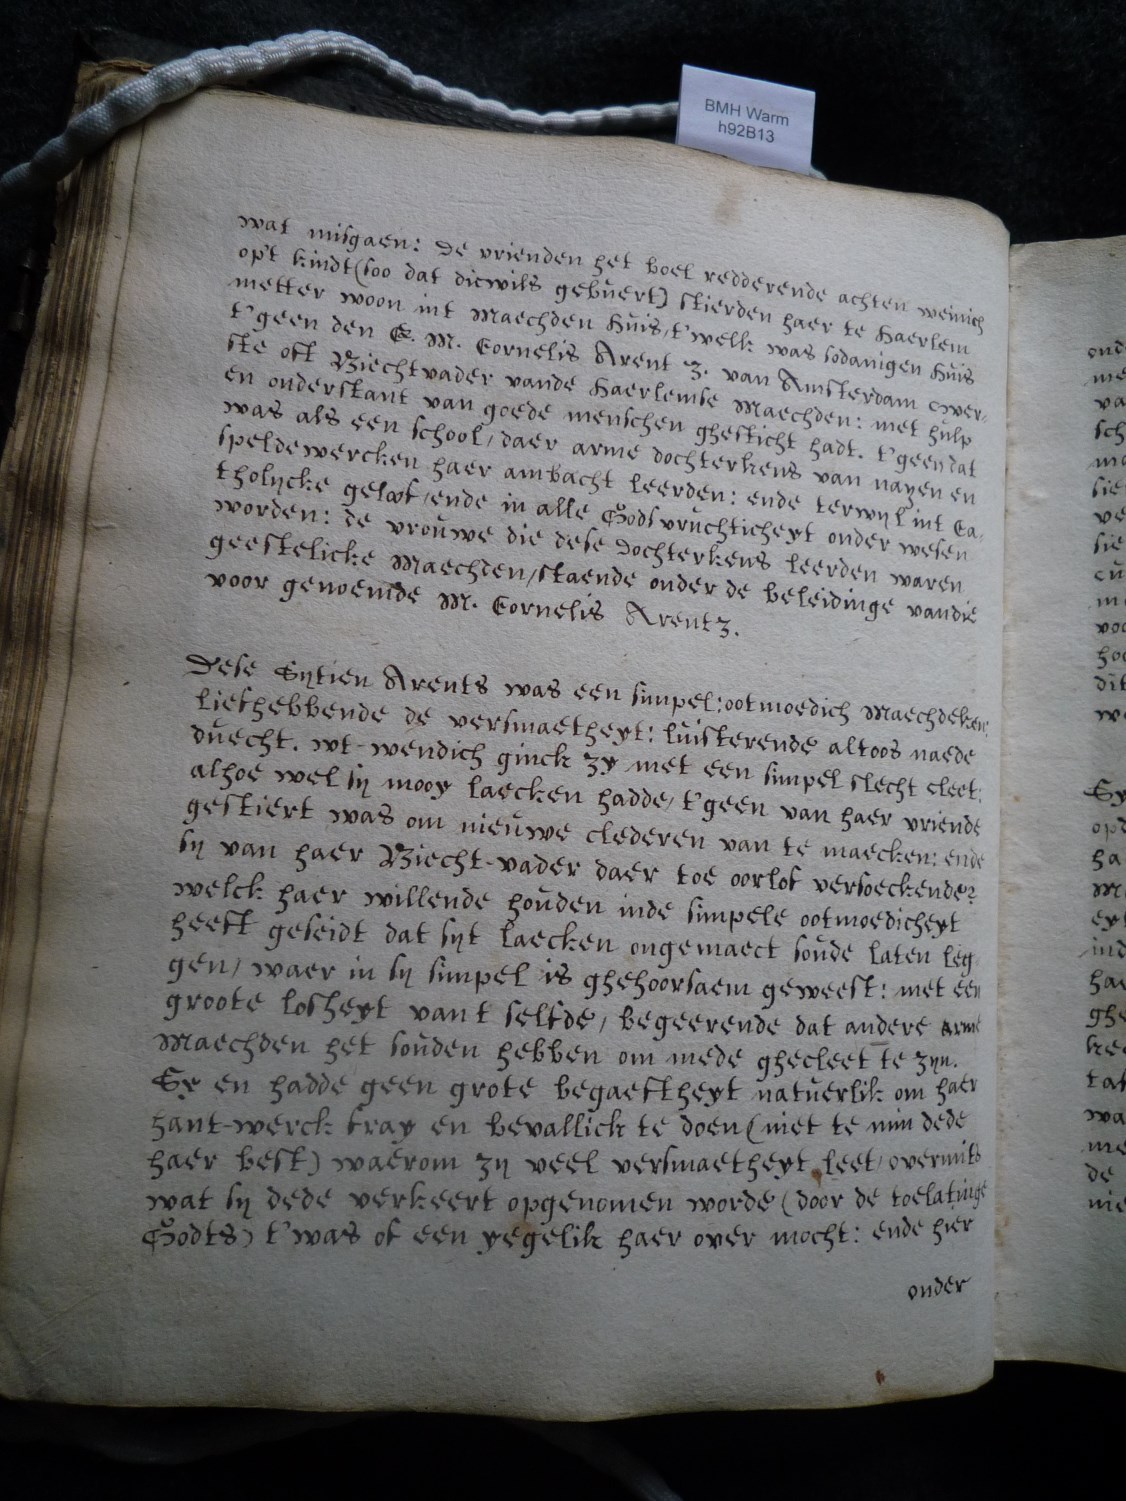 BMH Warm
h92B13
wat misgaen: De vrienden het boel redderende achten weinich
op't kindt (soo dat dicwils gebuert) stierden haer te Haerlem
metter woon int Maechden huis, t'welk was sodanigen huis
t'geen den E. M. Cornelis Arent Z. van Amsterdam
ste oft Biechtvader vande Haerlemse Maechden: met hulp
en onderstant van goede menschen ghesticht hadt. t'geen dat
was als een school, daer arme dochterkens van nayen en
speldewercken haer ambacht leerden: ende terwyl int Ca-
tholycke geloof, ende in alle Godsvruchticheyt onder wesen
worden: de vrouwe die dese dochterkens leerden waren
geestelicke Maechden, staende onder de beleidinge vandie
voor genoemde M. Cornelis Arentz.
Dese Sytien Arents was een simpel; ootmoedich Maechdeken;
liefhebbende de versmaetheyt: luisterende altoos naede
duecht. wt-wendich ginck zy met een simpel slecht cleet:
alhoe wel sy mooy laecken hadde, t'geen van haer vriende
gestiert was om nieuwe clederen van te maecken: ende
sy van haer Biecht-vader daer toe oorlof versoeckende?
welck haer willende houden inde simpele ootmoedicheyt
heeft geseidt dat syt laecken ongemaect soude laten leg
gen, waer in sy simpel is ghehoorsaem geweest: met een
groote losheyt vant selfde, begeerende dat andere arme
Maechden het souden hebben om mede ghecleet te zyn.
Sy en hadde geen grote begaeftheyt natuerlik om haer
hant-werck fray en bevallick te doen (niet te min dede
haer best) waerom zy veel versmaetheyt leet, overmits
wat sy dede verkeert opgenomen worde (door de toelatinge
Godts) t'was of een yegelik haer over mocht: ende hier
onder